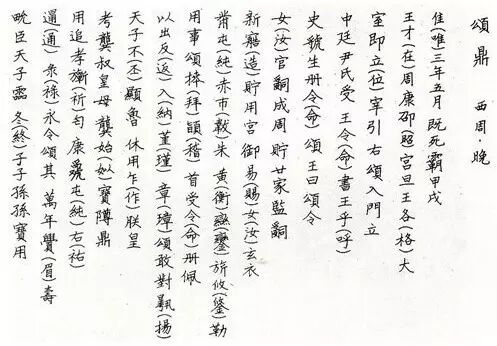 頌鼎 西周·晚
隹(唯)三年五月既死霸甲戌
王才(在)周康邵(照)宮旦王各(格)大
室即立(位)宰引右頌入門立
中廷尹氏受王令(命)書王乎(呼)
史虢生册令(命)頌王曰頌令
女(汝)官嗣成周貯廿家監嗣
新寤(造)貯用宮御易(賜)女(汝)玄衣
黹屯(純)赤市(縠)朱黃(衡)䜌(鑾)旂攸(鋚)勒
用事頌捧(拜)䭫(稽)首受令(命)册佩
以出反(返)入(納)堇(瑾)章(璋)頌敢對(揚)
天子不(丕)顯魯休用乍(作)朕皇
考龔叔皇母龔始(姒)寶䵼鼎
用追孝(祈)匄康屯(純)右(祐)
通彔(祿)永令頌其萬年(眉)壽
畯臣天子霝冬(終)子子孫孫寶用